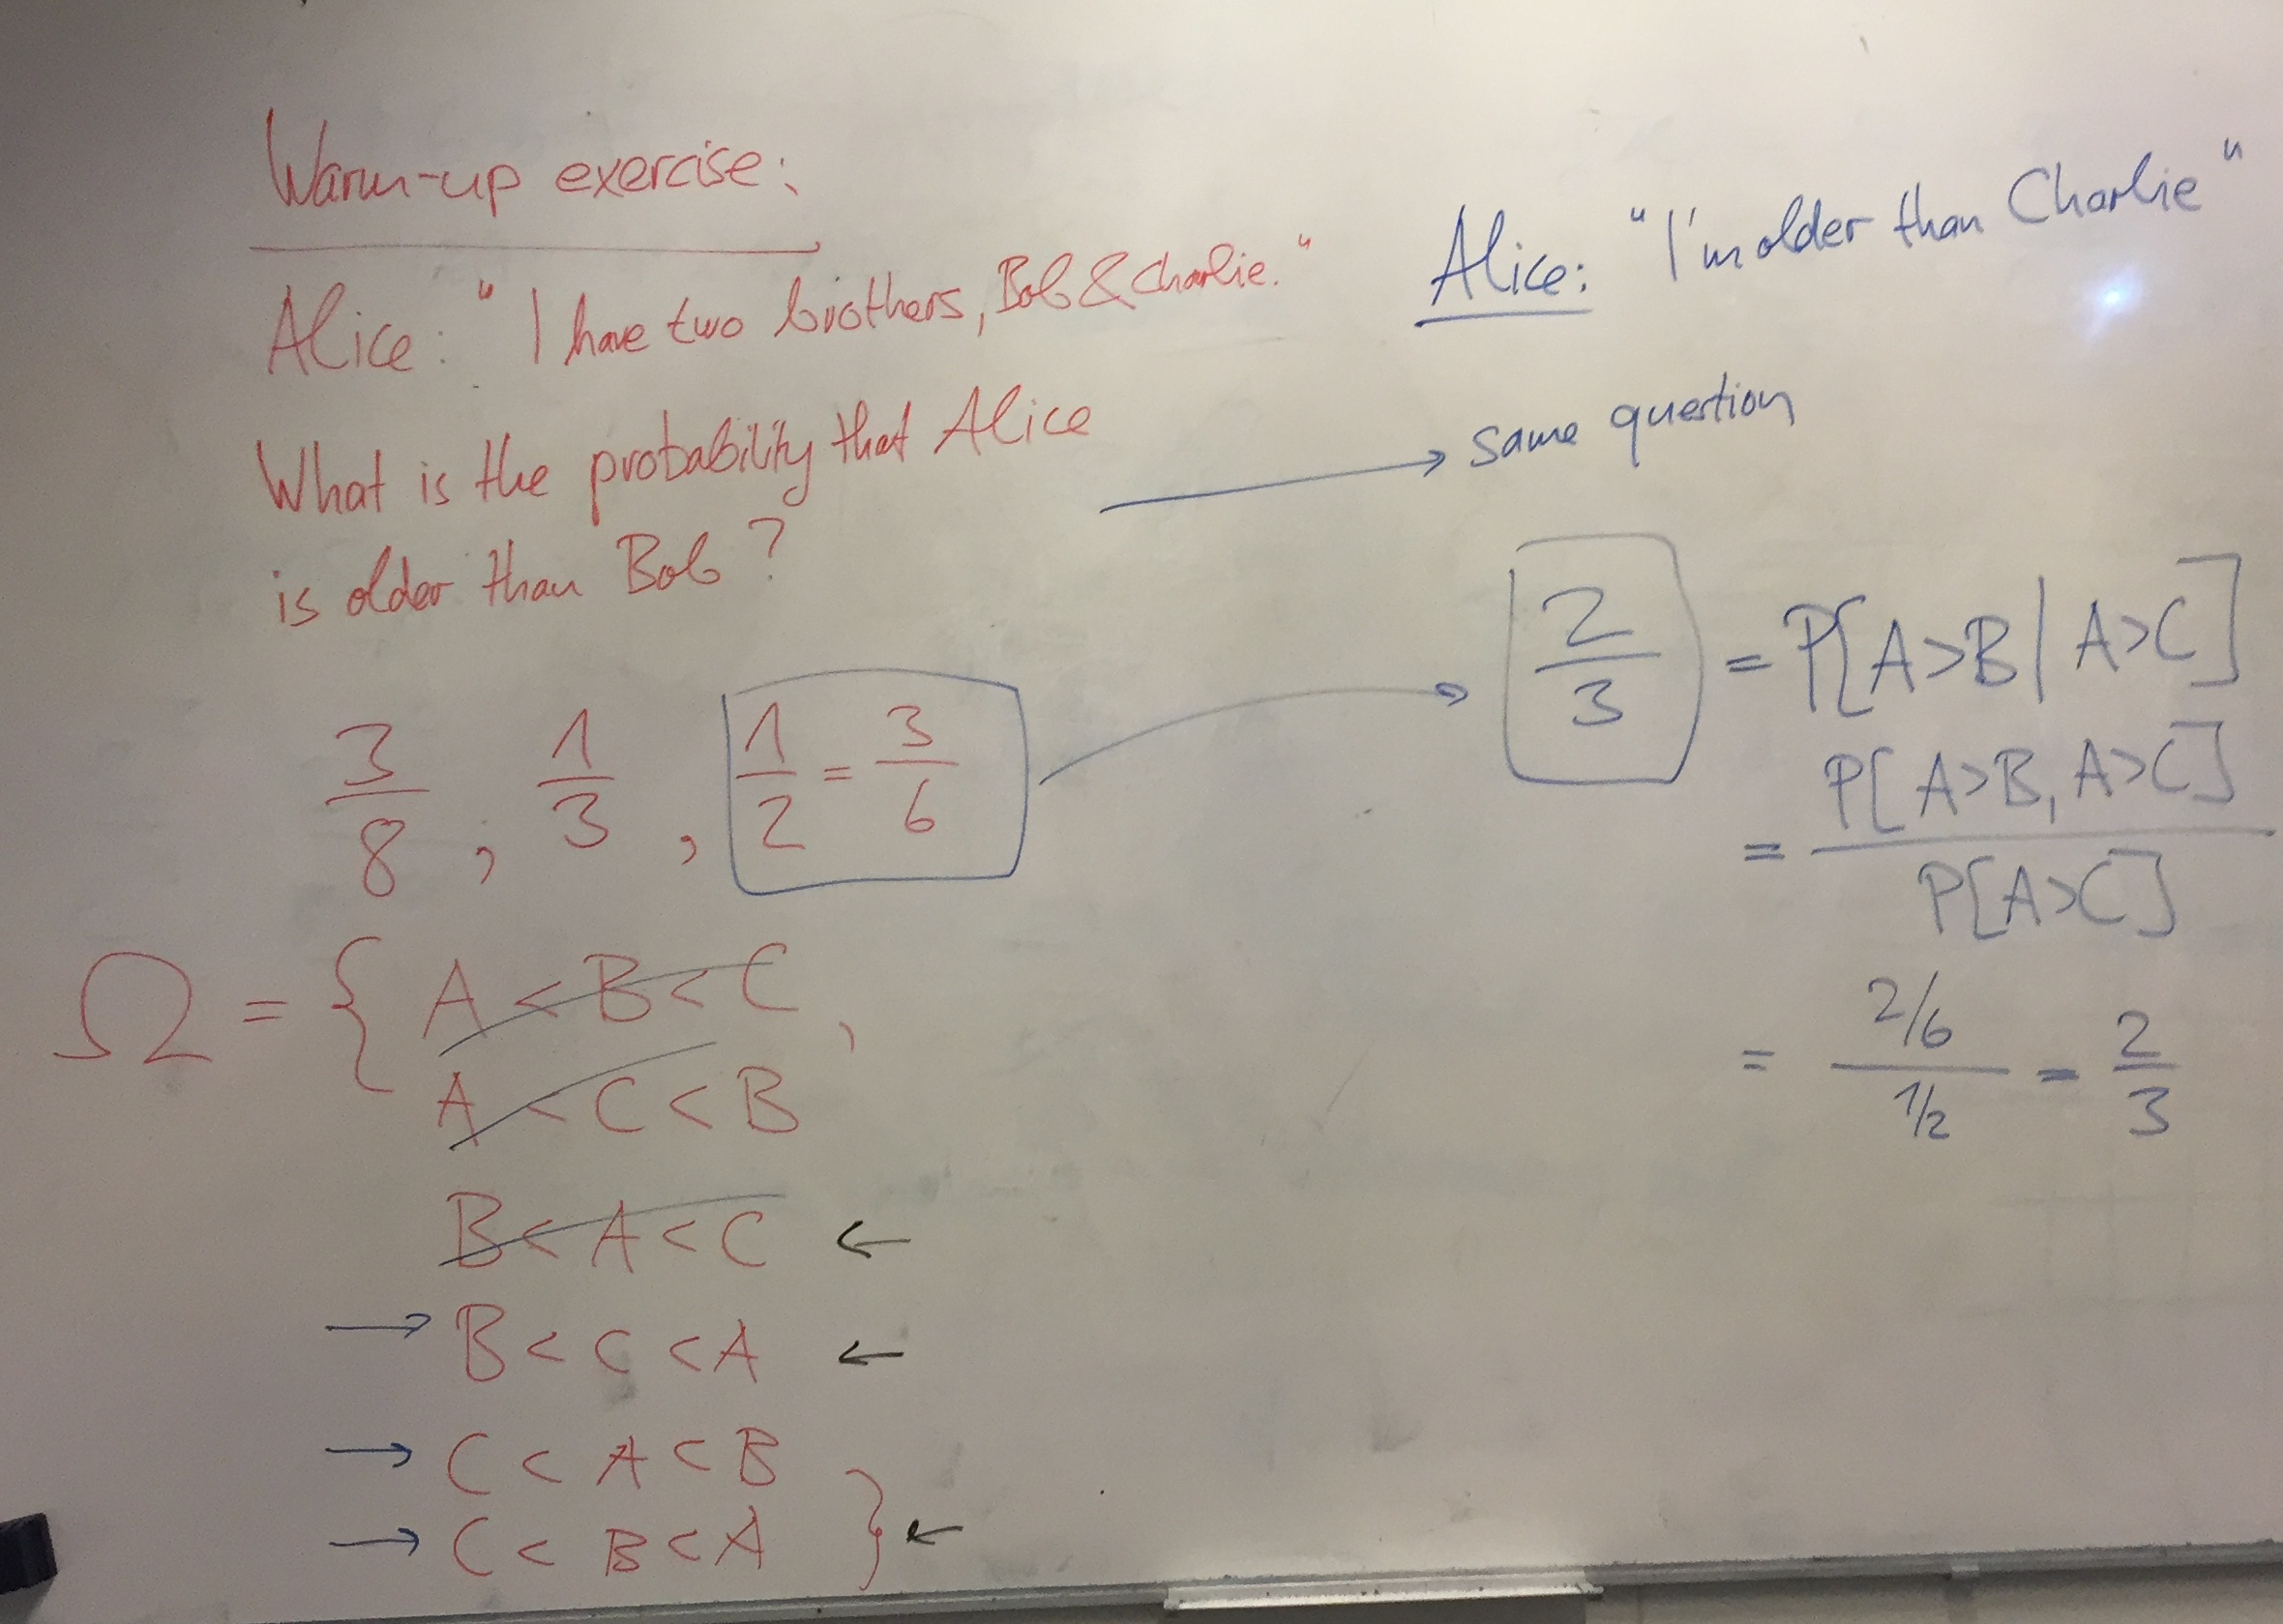 Warm-up exercise:
Alice: "I have two brothers, Bob & Charlie."
What is the probability that Alice
is older than Bob?
3/8, 1/3, 1/2 = 3/6
Ω = { A < B < C,
A < C < B
B < A < C ←
→ B < C < A ←
→ C < A < B
→ C < B < A } ←
Alice: "I'm older than Charlie"
→ same question
→ 2/3 = P[A>B | A>C]
= P[A>B, A>C] / P[A>C]
= 2/6 / 1/2 = 2/3